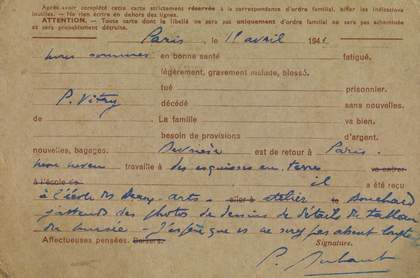 Après avoir complété cette carte strictement réservée à la correspondance d'ordre familial, biffer les indications
inutiles. — Ne rien écrire en dehors des lignes.
ATTENTION. — Toute carte dont le libellé ne sera pas uniquement d'ordre familial ne sera pas acheminée
et sera probablement détruite.
Paris le 15 avril 1941
nous sommes en bonne santé fatigué.
légèrement, gravement malade, blessé.
tué prisonnier.
P. Vitry décédé sans nouvelles.
de La famille va bien.
besoin de provisions d'argent.
nouvelles, bagages. est de retour à Paris.
mon neveu travaille à des esquisses en terre va entrer
à l'école de il a été reçu
à l'école des Beaux-arts - aller à atelier Bouchard
j'attends des photos de dessins de détail de tableau
du musée - J'espère que ce ne sera pas absent
Affectueuses pensées. Baisers. Signature.
P.